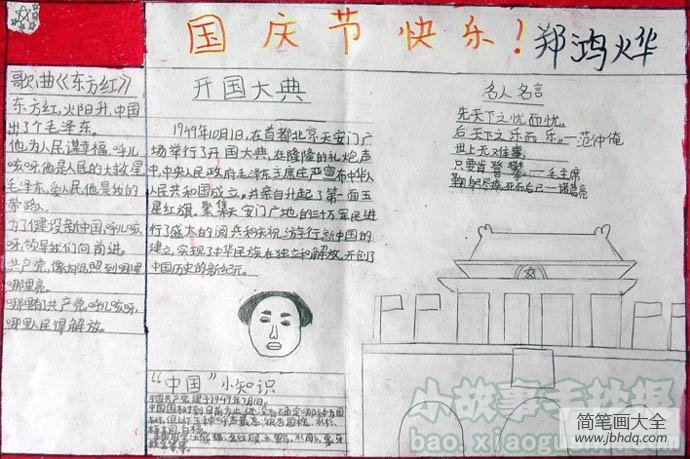 国庆节快乐!郑鸿烨
歌曲《东方红》
东方红,火阳升,中国
出了个毛泽东。
他为人民谋幸福,呼儿
咳呀,他是人民的大救星
毛泽东,爱人民,他是我的
带路人
为了建设新中国,呼儿咳
呀,领导我们向前进。
共产党,像太阳照到哪里
哪里亮。
哪里有共产党,呼儿咳呀,
哪里人民得解放。
开国大典
1949年10月1日,在首都北京天安门广
场举行了开国大典,在隆隆的礼炮声
中,中央人民政府毛泽东主席庄严宣布中华人
民共和国成立,并亲自升起了第一面五
星红旗。聚集天安门广地的三十万军民进
行了盛大的阅兵和庆祝游行。新中国的
建立,实现了中华民族在独立和解放,开创了
中国历史的新纪元。
名人名言
先天下之忧而忧,
后天下之乐而乐。—范仲俺
世上无又难事,
只要肯登攀。—毛主席
鞠躬尽瘁,死而后已—诸葛亮
“中国”小知识
小故事手抄报
bao.xiaogushi.com
简笔画大全
www.jbhdq.com